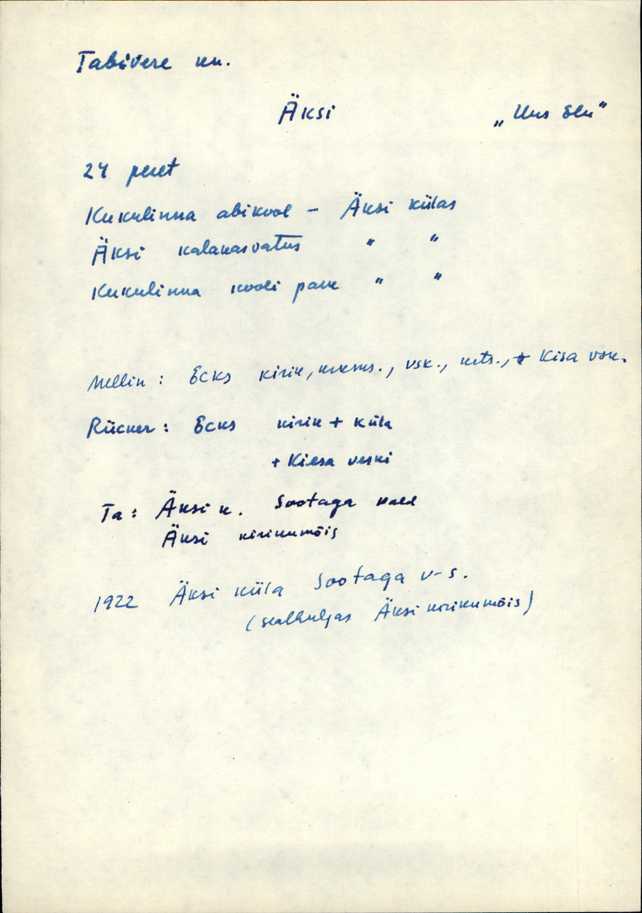 Tabivere kn.
Äksi „Uus Elu"
24 peret
Kukulinna abikool – Äksi külas
Äksi kalakasvatus " "
Kukulinna kooli park " "
Mellin : Ecks kirik, vsk., + Kisa vsk.
Rücker : Ecks kirik + küla
+ Kiesa veski
Ta : Äksi k. Sootaga vald
Äksi kirikumõis
1922 Äksi küla Sootaga v-s.
(sealhulgas Äksi kirikumõis)